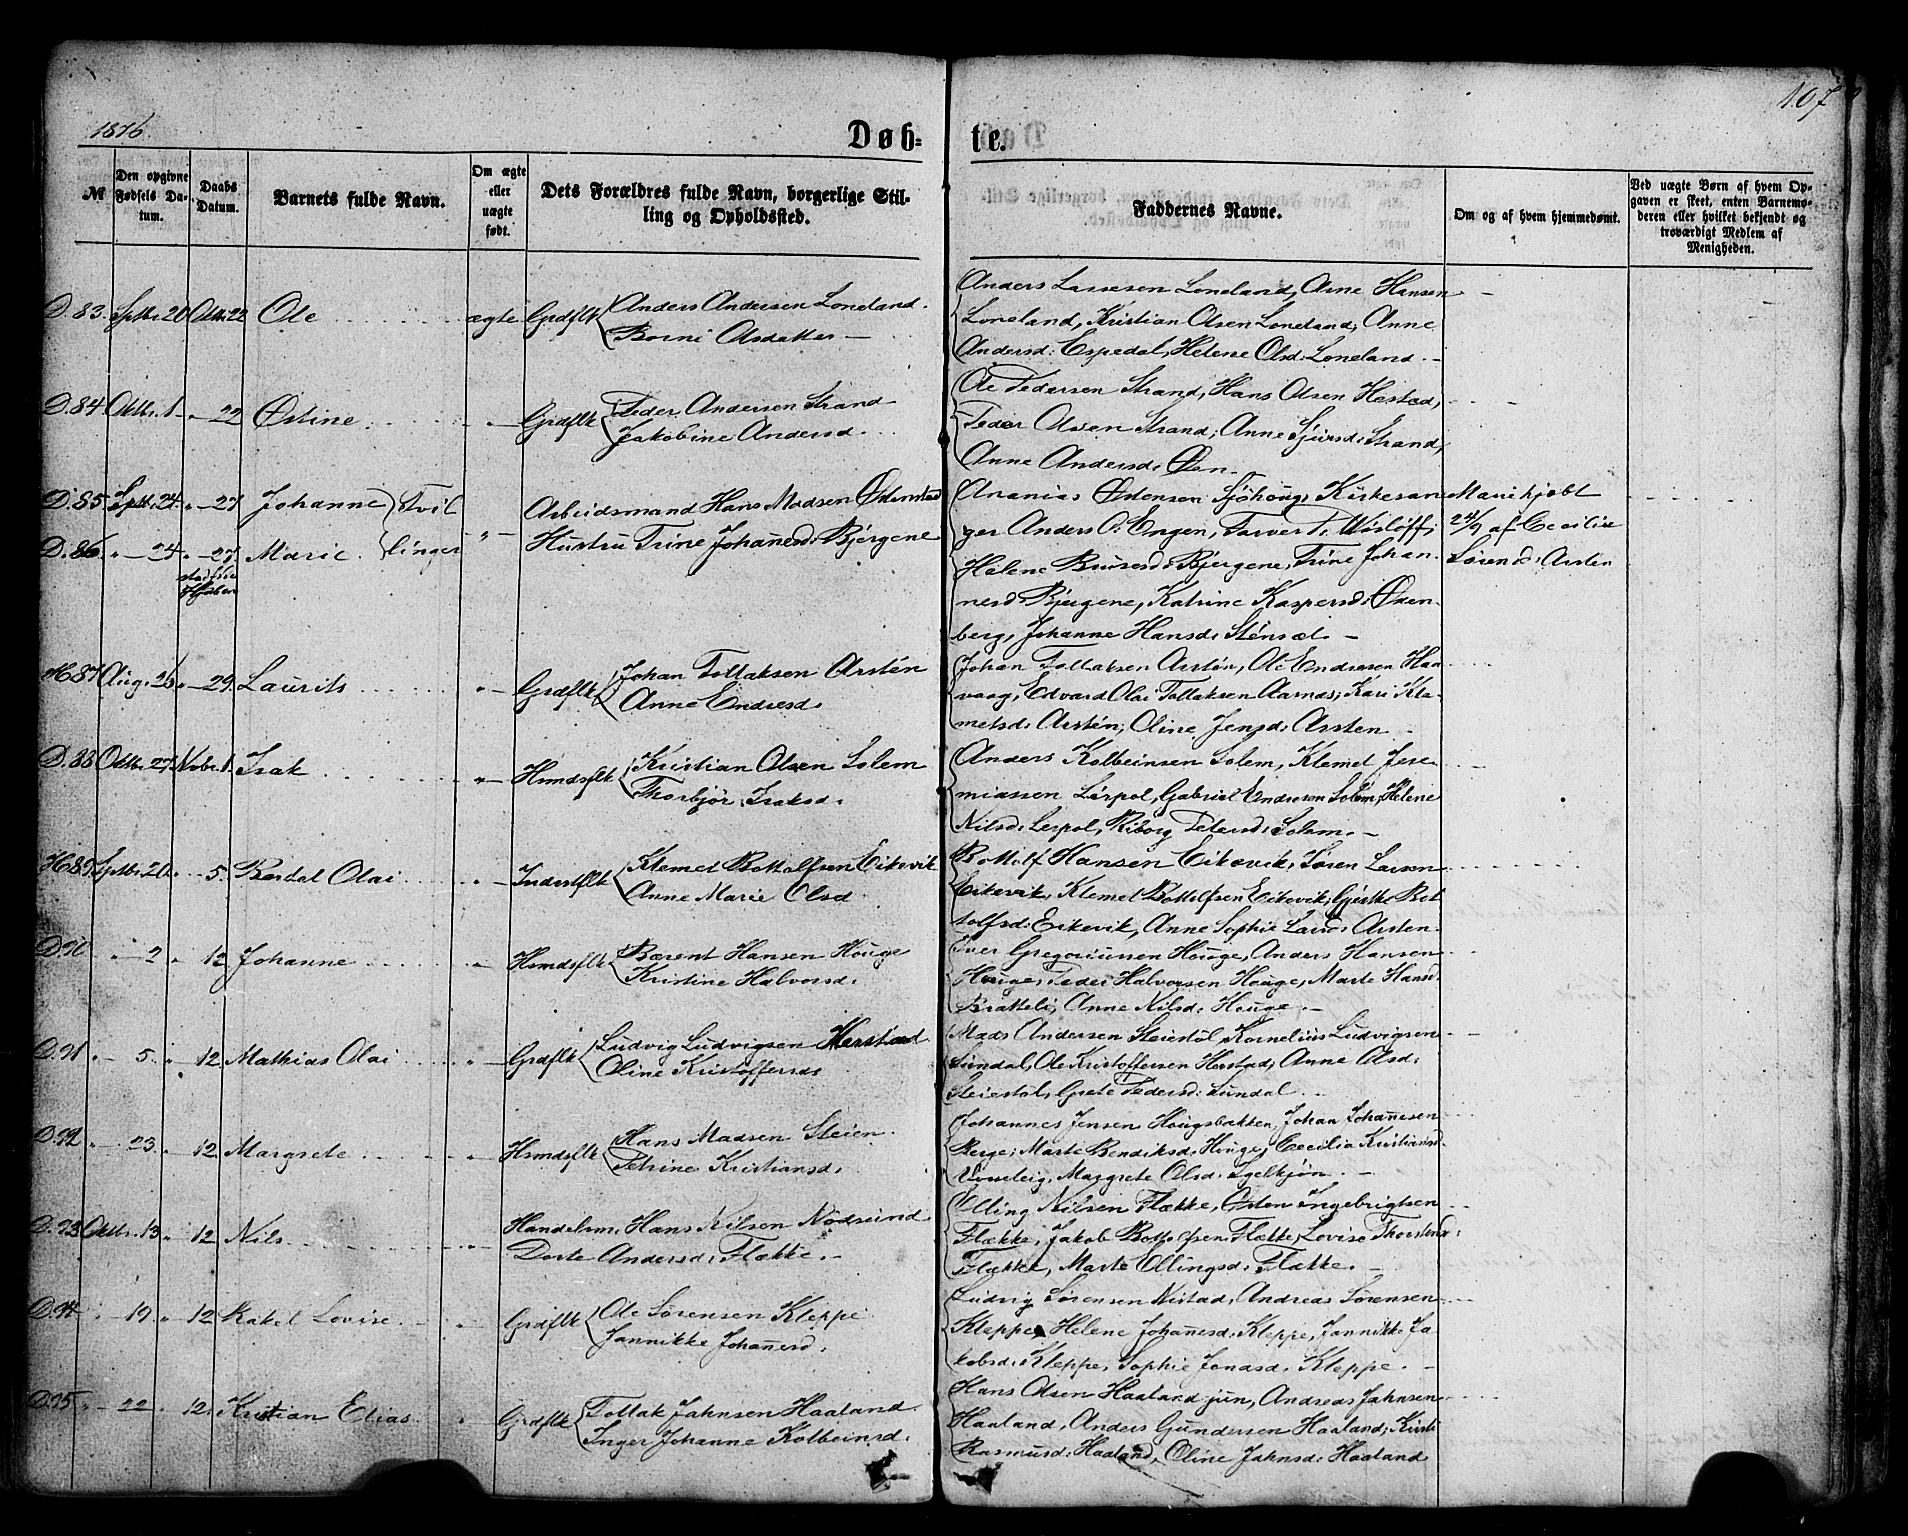 1876.
107
Døb-
te.
№
Den opgivne Fødsels Datum.
Daabs Datum.
Barnets fulde Navn.
Om ægte eller uægte født.
Dets Forældres fulde Navn, borgerlige Stilling og Opholdssted.
Faddernes Navne.
Om og af hvem hjemmedøbt.
Ved uægte Børn af hvem Opgaven er skeet, enten Barnemoderen eller hvilket bekjendt og troværdigt Medlem af Menigheden.
D. 83. Septbr. 20 Octbr. 22 Ole ægte Grdflk Anders Andersen Loneland.
Borni Olsdatter —
Anders Lassesen Loneland, Arne Hansen —
Loneland, Kristian Olsen Loneland; Anne
Andersd: Espedal, Helene Olsd: Loneland. —
D. 84 Oktbr. 1 „ - 22 Østine „ - Grdflk Peder Andersen Strand
Jakobine Andersd.
Ole Pedersen Strand, Hans Olsen Hæstad,
Peder Olsen Strand; Anne Sjursd: Strand,
Anne Andersd: Øen.
D. 85. Septbr. 24. „ - 27 Johanne Tvil
D. 86. „ - 24 „ - 27 Marie linger „ -
Arbeidsmand Hans Madsen Østenstad
Hustru Trine Johannesd: Bjergene
Ananias Østensen Sjøhoug, Kirkesan
ger Anders O. Engen, Farver T. Wisløff;
Helene Brusesd: Bjergene, Trine Johan
nesd: Bjergene, Katrine Kaspersd: Østen
berg, Johanne Hansd: Stensæt —
Marie hjdbt
24/9 af Cecilie
Sørensd: Aasten
H. 87 Aug. 26 „ - 29. Laurits „ - Grdflk Johan Tollaksen Aasten
Anne Endresd.
Johan Tollaksen Aasten, Ole Endresen Haa
vaag, Edvard Olai Tollaksen Aarnæs; Kari Kle
metsd: Aasten, Oline Jensd: Aasten
D. 88 Oktbr. 27. Novbr. 1. Isak „ - Hsmdsflk Kristian Olsen Solem
Thorbjør Isaksd.
Anders Kolbeinsen Solem, Klemet Jere
miassen Leirpol, Gabriel Endresen Solem; Helene
Nilsd: Leirpol, Riborg Petersd: Solem. —
H. 89. Septbr. 20. „ - 5. Berdal Olai „ - Inderstflk Klemet Bottolfsen Eikevik
Anne Marie Olsd
Bottolf Hansen Eikevik, Søren Larsen
Eikevik, Klemet Bottolfsen Eikevik; Gjertke Bot
tolfsd: Eikevik, Anne Sophie Larsd: Aasten
D. 90 „ - 2 „ 12 Johanne „ - Hsmdsflk Bærent Hansen Houge
Kristine Halvorsd.
Iver Gregoriussen Houge, Anders Hansen
Houge, Peder Halvorsen Houge, Marte Hansd:
Bratteli, Anne Nilsd: Houge. —
D. 91 „ - 5 „ 12 Mathias Olai „ - Grdflk Ludvig Ludvigsen Herstad
Oline Kristoffersd
Mads Andersen Steiestøl, Kornelius Ludvigsen
Sundal, Ole Kristoffersen Herstad; Anne Olsd:
Steiestøl, Grete Pedersd: Sundal
D. 92 „ - 23 „ 12 Margrete „ Hsmdsflk Hans Madsen Steien
Petrine Kristiansd.
Johannes Jensen Hougsbakken, Johan Johannesen
Berge; Marte Bendiksd: Houge, Cecilia Kristiansd:
Margrete Olsd: Igelkjøn. —
D. 93 Oktbr. 13 „ 12 Nils „ - Handelsm. Hans Nilsen Nodsund
Dorte Andersd: Flække. —
Elling Nilsen Flække, Østen Ingebrigtsen
Flække, Jakob Bottolfsen Flække, Lovise Thorstensd:
Flække, Marte Ellingsd: Flække. —
D. 94 „ - 19 „ 12 Rakel Lovise „ Grdflk Ole Sørensen Kleppe
Jannikke Johannesd.
Ludvig Sørensen Nistad, Andreas Sørensen
Kleppe, Helene Johannesd: Kleppe, Jannikke Ja
kobsd: Kleppe, Sophie Jonasd: Kleppe. —
D. 95 „ - 22 „ 12 Kristian Elias „ Grdflk Tollak Jahnsen Haaland
Inger Johanne Kolbeinsd.
Hans Olsen Haaland jun, Andreas Jahnsen
Haaland, Anders Gundersen Haaland; Kirsti
Rasmusd: Haaland, Oline Jahnsd: Haaland